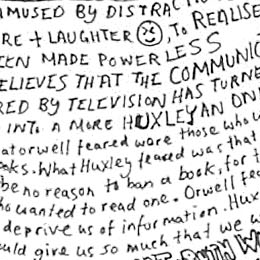 AMUSED BY DISTRAC
RE + LAUGHTER , TO REALISE
EEN MADE POWERLESS
ELIEVES THAT THE COMMUNIC
RED BY TELEVISION HAS TURNE
INTO A MORE HUXLEYAN ON
at orwell feared were those who w
ooks. What Huxley feared was that
be no reason to ban a book, for t
ho wanted to read one. Orwell fea
deprive us of information. Hux
uld give us so much that we w
TRUTH W